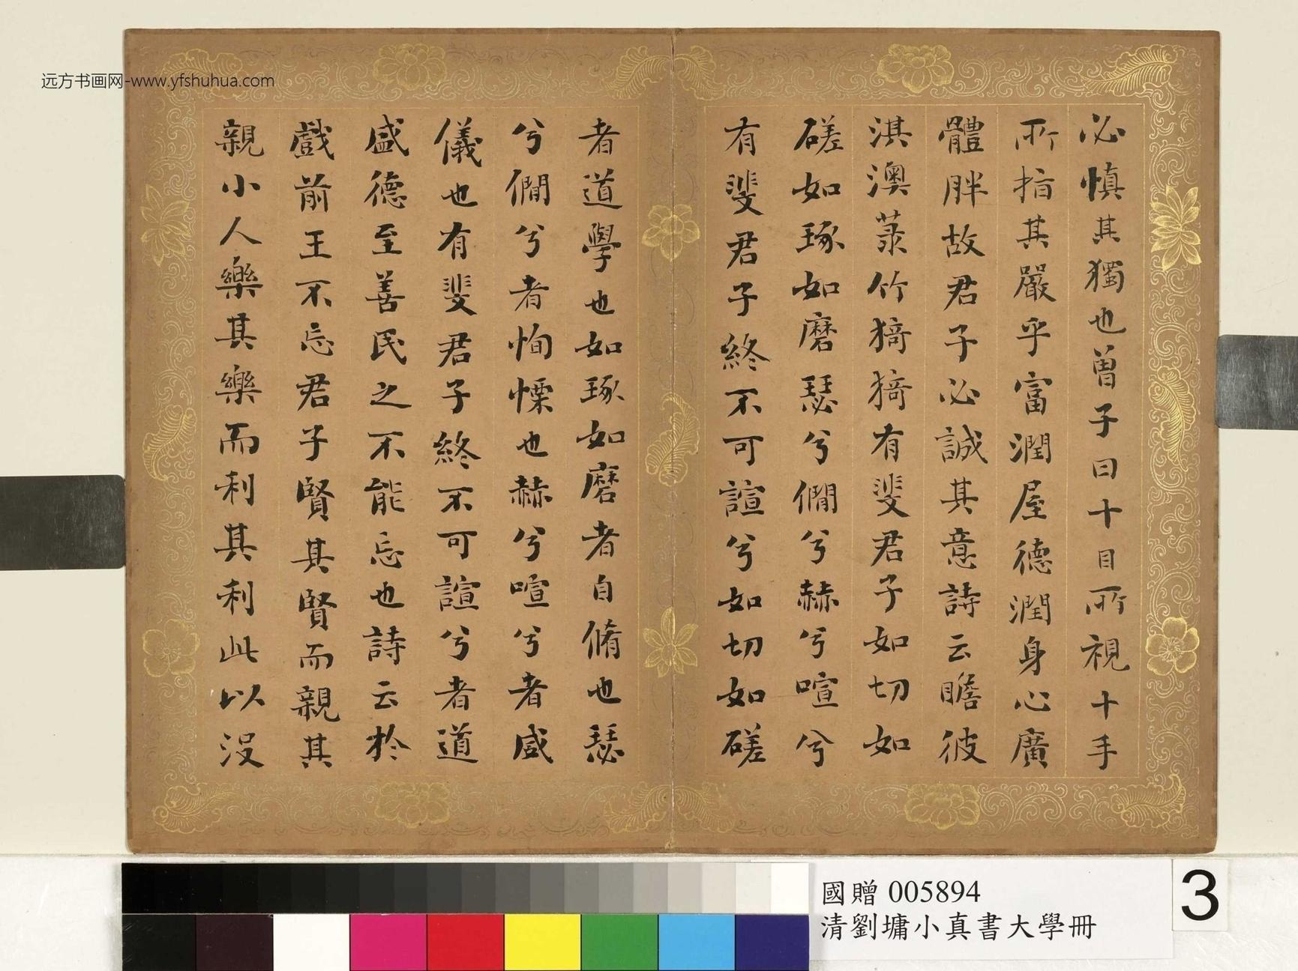 远方书画网-www.yfshuhua.com
必慎其獨也曽子曰十目所視十手
所指其嚴乎富潤屋德潤身心廣
體胖故君子必誠其意詩云瞻彼
淇澳菉竹猗猗有斐君子如切如
磋如琢如磨瑟兮僩兮赫兮喧兮
有斐君子終不可諠兮如切如磋
者道學也如琢如磨者自脩也瑟
兮僩兮者恂慄也赫兮喧兮者威
儀也有斐君子終不可諠兮者道
盛德至善民之不能忘也詩云於
戲前王不忘君子賢其賢而親其
親小人樂其樂而利其利此以沒
國贈 005894
清劉墉小真書大學冊
3